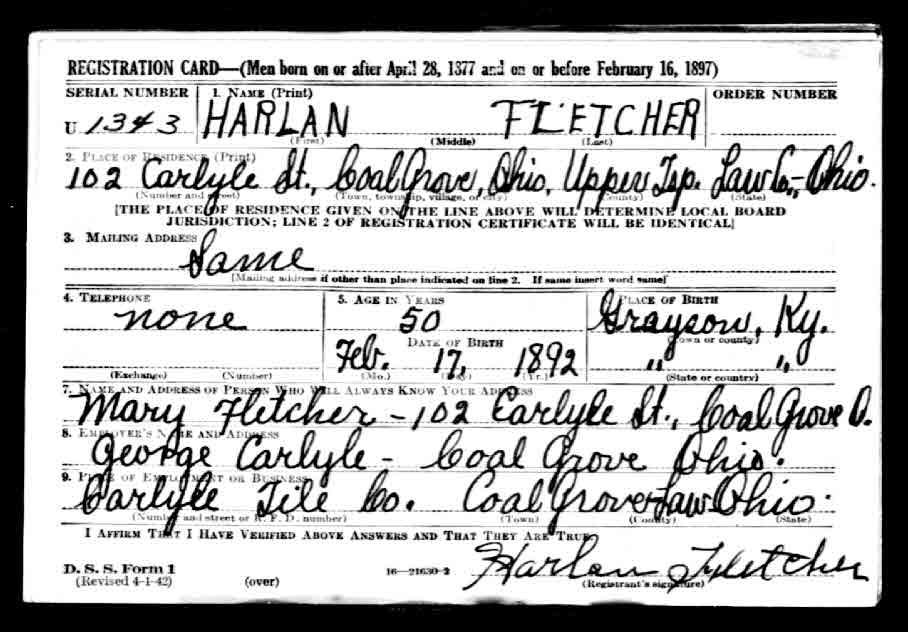 REGISTRATION CARD—(Men born on or after April 28, 1877 and on or before February 16, 1897)
SERIAL NUMBER 1. NAME (Print) ORDER NUMBER
U 1343 HARLAN FLETCHER
(First) (Middle) (Last)
2. PLACE OF RESIDENCE (Print)
102 Carlyle St., Coal Grove, Ohio, Upper Tsp. Law Co., Ohio.
(Number and street) (Town, township, village, or city) (County) (State)
[THE PLACE OF RESIDENCE GIVEN ON THE LINE ABOVE WILL DETERMINE LOCAL BOARD
JURISDICTION; LINE 2 OF REGISTRATION CERTIFICATE WILL BE IDENTICAL]
3. MAILING ADDRESS
Same
[Mailing address if other than place indicated on line 2. If same insert word same]
4. TELEPHONE 5. AGE IN YEARS PLACE OF BIRTH
none 50 Grayson, Ky.
DATE OF BIRTH (Town or county)
Feb. 17, 1892 " "
(Exchange) (Number) (Mo.) (Day) (Yr.) (State or country)
7. NAME AND ADDRESS OF PERSON WHO WILL ALWAYS KNOW YOUR ADDRESS
Mary Fletcher - 102 Carlyle St., Coal Grove O.
8. EMPLOYER'S NAME AND ADDRESS
George Carlyle - Coal Grove Ohio.
9. PLACE OF EMPLOYMENT OR BUSINESS
Carlyle Tile Co. Coal Grove-Law-Ohio.
(Number and street or R. F. D. number) (Town) (County) (State)
I AFFIRM THAT I HAVE VERIFIED ABOVE ANSWERS AND THAT THEY ARE TRUE.
Harlan Fletcher
D. S. S. Form 1
(Revised 4-1-42) (over) 16—21630-2 (Registrant's signature)